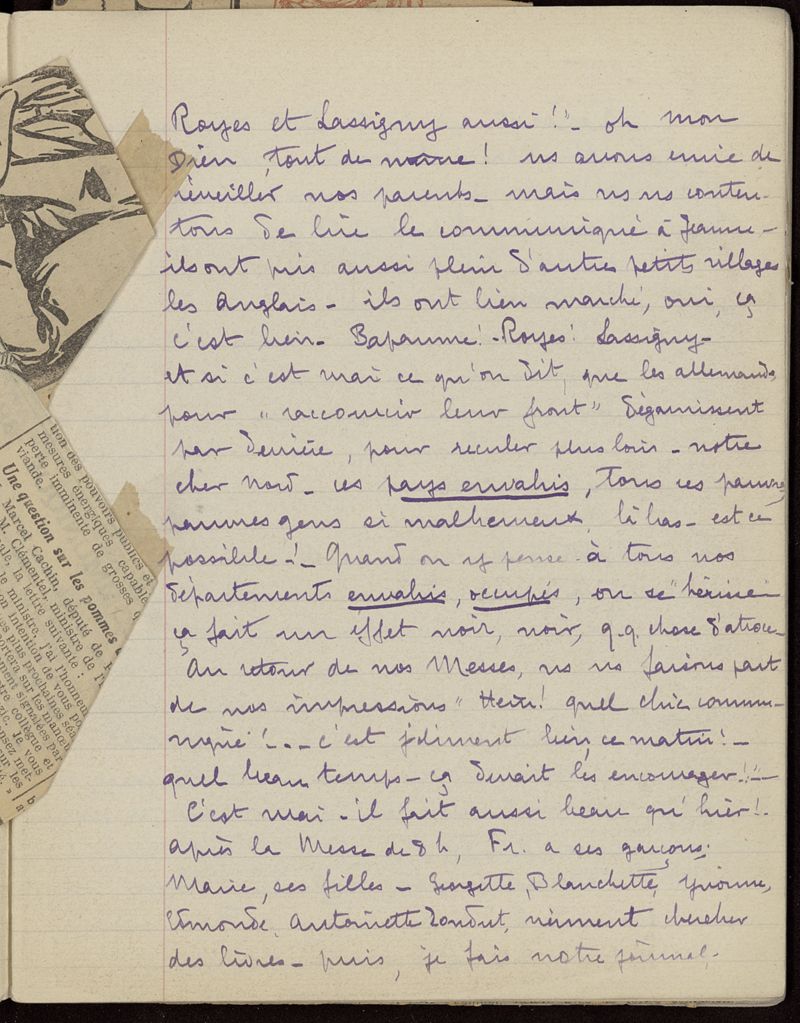 Royes et Lassigny aussi !"- oh mon
Dieu, tout de même ! ns avons envie de
réveiller nos parents - mais ns ns conten-
tons de lire le communiqué à Jeanne -
ils ont pris aussi plein d'autres petits villages
les Anglais - ils ont bien marché, oui, ça
c'est bien - Bapaume ! - Royes ! Lassigny -
et si c'est vrai ce qu'on dit, que les allemands
pour "raccourcir leur front" dégarnissent
par derrière, pour reculer plus loin - notre
cher Nord - ces pays envahis, tous ces pauvres
pauvres gens si malheureux, là bas - est ce
possible - ! - Quand on y pense à tous nos
départements envahis, occupés, on se hérisse -
ça fait un effet noir, noir, q.q. chose d'atroce -
Au retour de nos Messes, ns ns faisons part
de nos impressions " Hein ! quel chic commu-
niqué ! - - c'est joliment bien, ce matin ! -
quel beau temps - ça devait les encourager !! " -
C'est vrai - il fait aussi beau qu'hier ! -
Après la Messe de 8h, Fr. a ses garçons,
Marie, ses filles - Georgette, Blanchette, Yvonne,
Edmonde, Antoinette viennent chercher
des livres - puis, je fais notre journal -
tion des pouvoirs publics et
mesures énergiques capable
perte imminente de grosses q
viande.
Une question sur les pommes
Marcel Cachin, député de
M. Clémentel, ministre de
la lettre suivante :
le ministre, j'ai l'honneur
intention de vous
plus prochaines
sur les manœu
signalées par
collègue et
Je vous